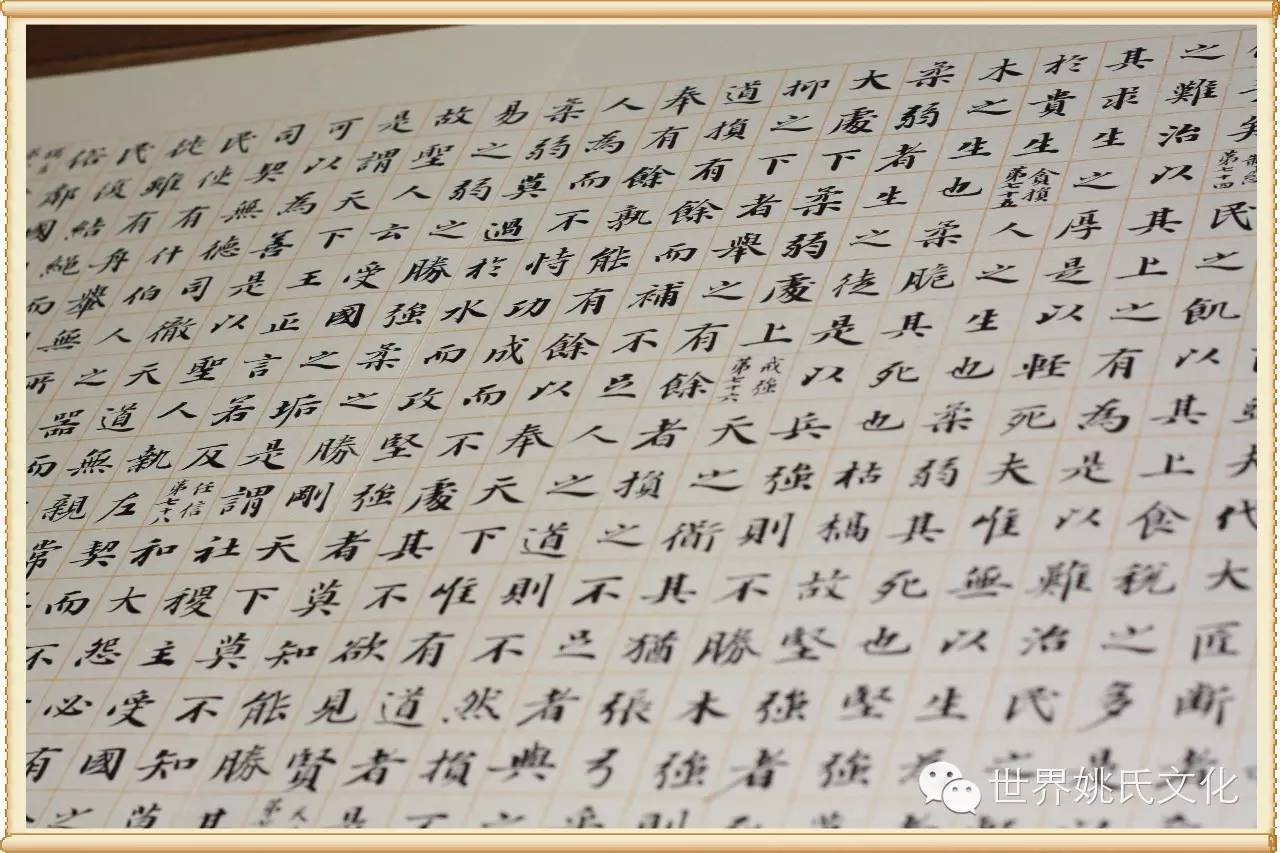 民之飢以其上食稅之多是
之難治以其上之有為是以難治民之
其求生生之厚是以輕死夫唯無以生為
於貴生貪損第七十五人之生也柔弱其死也堅強
木之生也柔脆其死也枯槁故堅強者
柔弱者生之徒是以兵強則不勝木強
大處下柔弱處上戒強第七十六天之衜其猶張弓
抑之下者舉之有餘者損之不足者與
道損有餘而補不足人之道則不然損
奉有餘孰能有餘以奉天下唯有道者
人為而不恃功成而不處其不欲見賢
柔弱莫過於水而攻堅強者莫知能勝
易之弱之勝強柔之勝剛天下莫不知
故聖人云受國之垢是謂社稷主受國
是謂天下王正言若反任信第七十八和大怨必有
可以為善是以聖人執左契而不
司契無德司徹天道無親常
民使有什伯人之器而
徙雖有舟轝無所
民復結繩而
俗鄰國
世界姚氏文化